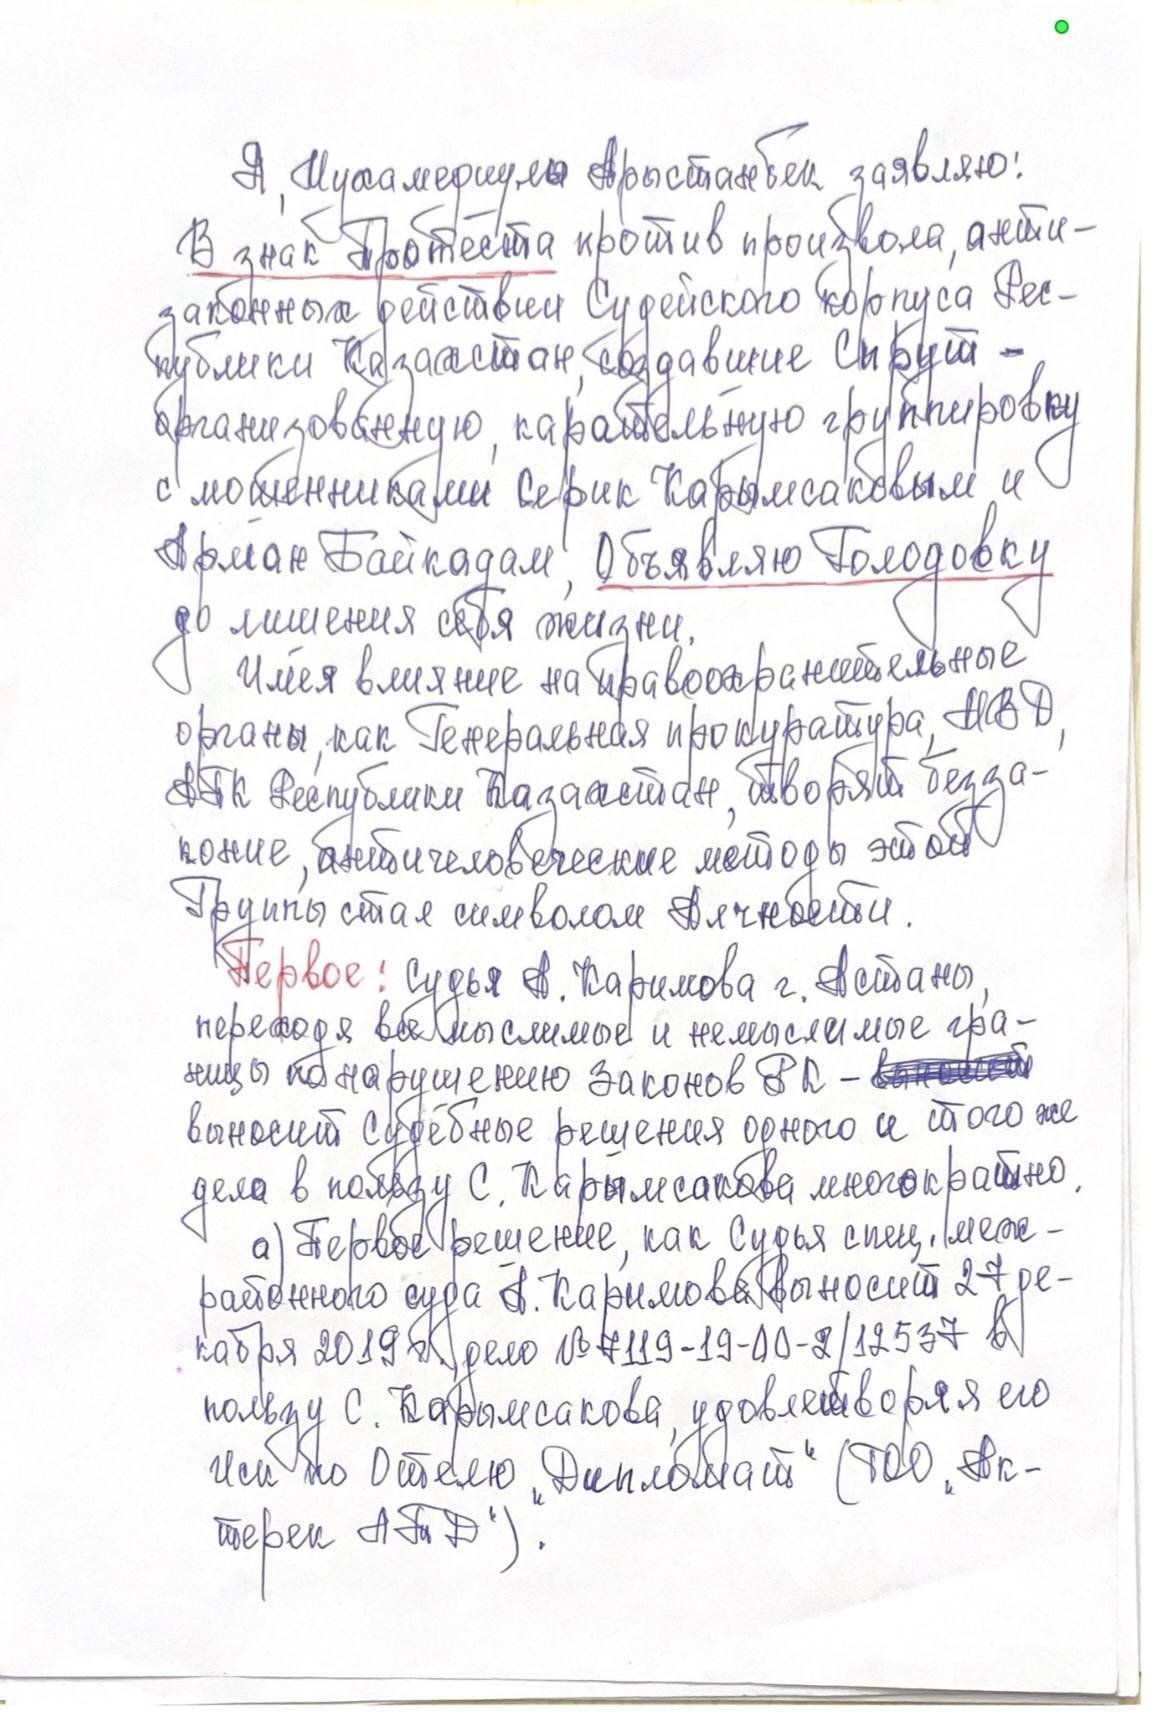 Я, Мухамедиулы Арыстанбек заявляю:
В знак Протеста против произвола, анти-
законных действии Судейского корпуса Рес-
публики Казахстан, создавшие Спрут -
организованную, карательную группировку
с мошенниками Серик Карымсаковым и
Арман Байкадам, Объявляю Голодовку
до лишения себя жизни.
Имея влияние на правоохранительные
органы, как Генеральная прокуратура, МВД,
АПК Республики Казахстан, творят безза-
коние, античеловеческие методы этой
Группы стал символом Алчности.
Первое: Судья А. Каримова г. Астаны,
переходя все мыслимые и немыслимые гра-
ницы по нарушению Законов РК -
выносит Судебные решения одного и того же
дела в пользу С. Карымсакова многократно.
а) Первое решение, как Судья спец. меж-
районного суда А. Каримова выносит 27 де-
кабря 2019 г. дело № 7119-19-00-2/12537 в
пользу С. Карымсакова, удовлетворяя его
Иск по Отелю „Дипломат“ (ТОО „Ак-
терек АПД“).